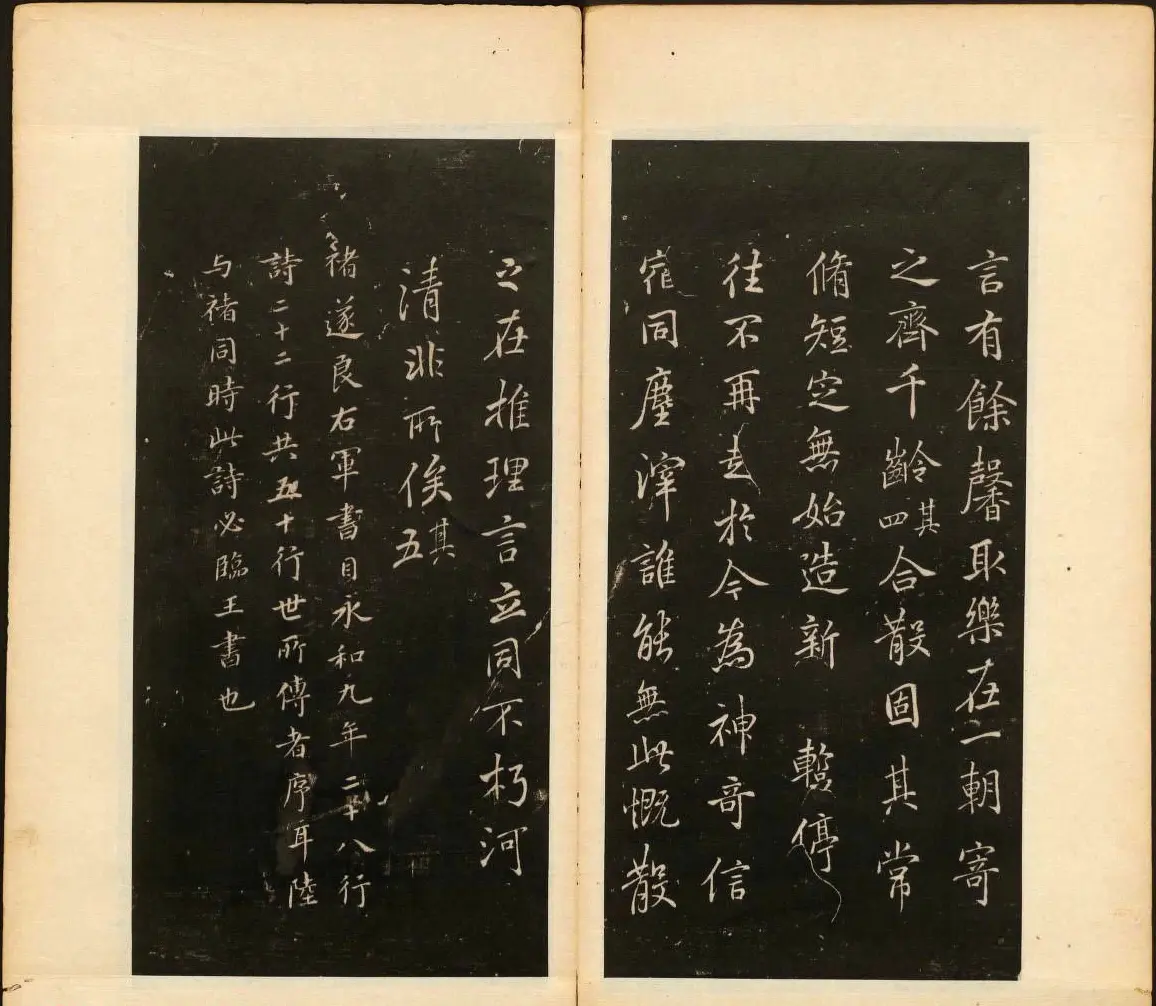 言有餘馨取樂在一朝寄
之齊千齡其四合散固其常
脩短定無始造新 暫停
往不再起於今為神奇信
宿同塵滓誰能無此慨散
之在推理言立同不朽河
清非所俟其五
褚遂良右軍書目永和九年二十八行
詩二十二行共五十行世所傳者序耳陸
与褚同時此詩必臨王書也